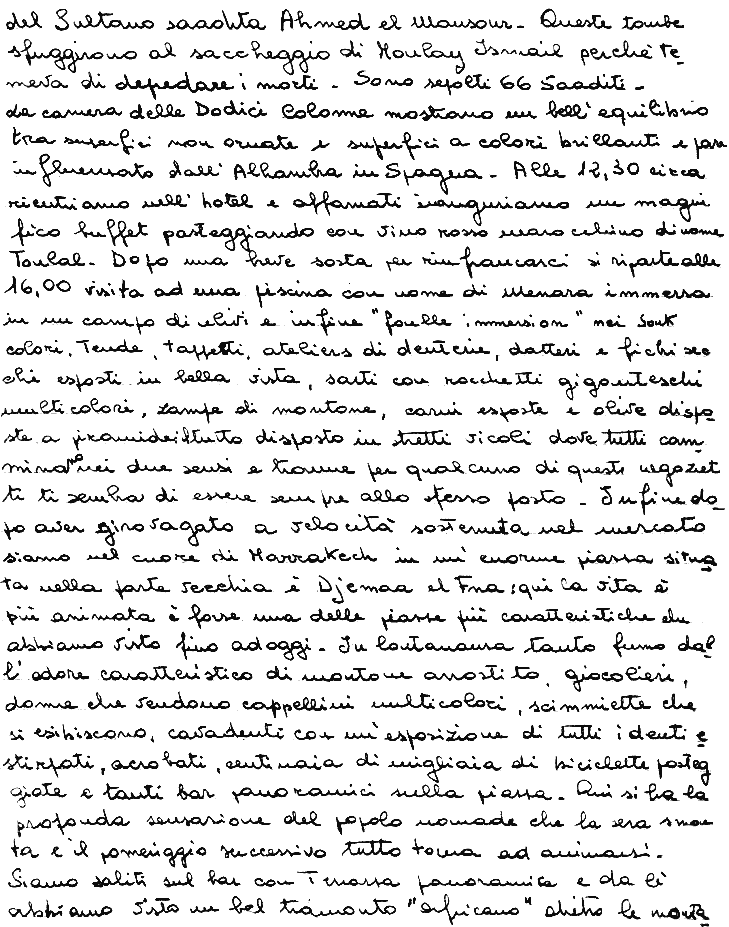 del Sultano saadita Ahmed el Mansour - Queste tombe
sfuggirono al saccheggio di Moulay Ismail perchè te
meva di depedare i morti - Sono sepolti 66 Saaditi -
La camera delle Dodici Colonne mostrano un bell'equilibrio
tra superfici non ornate e superfici a colori brillanti e pare
influenzato dall'Alhambra in Spagna - Alle 12,30 circa
rientriamo nell'hotel e affamati inauguriamo un magni
fico buffet pasteggiando con vino rosso marocchino di nome
Toulal - Dopo una breve sosta per rinfrancarci si riparte alle
16,00 visita ad una piscina con nome di Menara immersa
in un campo di ulivi e infine "foulle immersion" nei Souk
colori, Tende, tappeti, ateliers di dentene, datteri e fichi sec
chi esposti in bella vista, sarti con rocchetti giganteschi
multicolori, zampe di montone, carni esposte e olive dispo
ste a piramide il tutto disposto in stretti vicoli dove tutti cam
minano nei due sensi e tranne per qualcuno di questi negoziet
ti ti sembra di essere sempre allo stesso posto - Infine do
po aver girovagato a velocità sostenuta nel mercato
siamo nel cuore di Marrakech in un'enorme piazza situa
ta nella parte vecchia è Djemaa el Fna; qui la vita è
più animata è forse una delle piazze più caratteristiche che
abbiamo visto fino ad oggi - In lontananza tanto fumo dal
l'odore caratteristico di montone arrostito, giocolieri,
donne che vendono cappellini multicolori, scimmiette che
si esibiscono, cavadenti con un'esposizione di tutti i denti e
stirpati, acrobati, centinaia di migliaia di biciclette posteg
giate e tanti bar panoramici sulla piazza - Qui si ha la
profonda sensazione del popolo nomade che la sera smon
ta e il pomeriggio successivo tutto torna ad animarsi.
Siamo saliti sul bar con Terrazza panoramica e da lì
abbiamo visto un bel tramonto "africano" dietro le monta